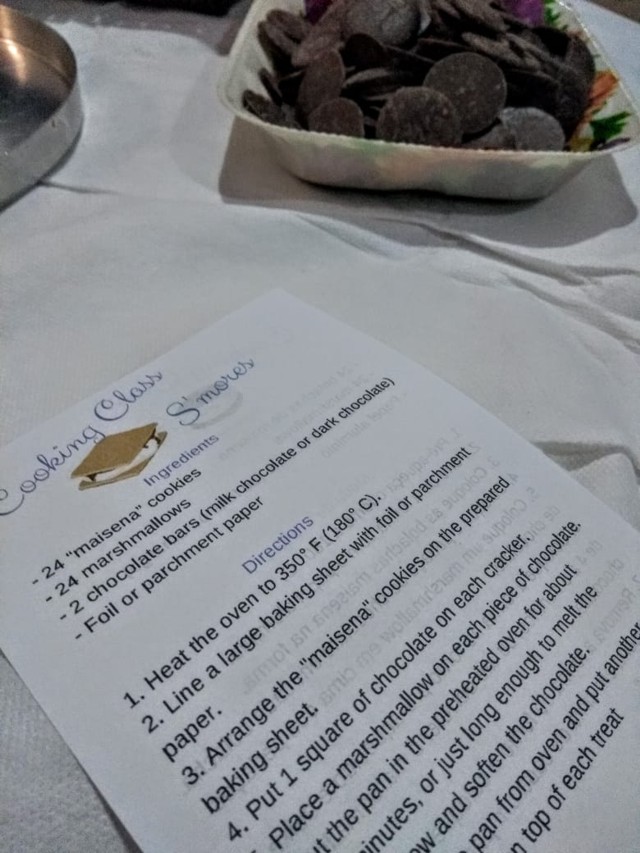 Cooking Class
S'mores
Ingredients
- 24 "maisena" cookies
- 24 marshmallows
- 2 chocolate bars (milk chocolate or dark chocolate)
- Foil or parchment paper
Directions
1. Heat the oven to 350° F (180° C).
2. Line a large baking sheet with foil or parchment
paper.
3. Arrange the "maisena" cookies on the prepared
baking sheet.
4. Put 1 square of chocolate on each cracker.
Place a marshmallow on each piece of chocolate.
the pan in the preheated oven for about
minutes, or just long enough to melt the
and soften the chocolate.
pan from oven and put another
top of each treat